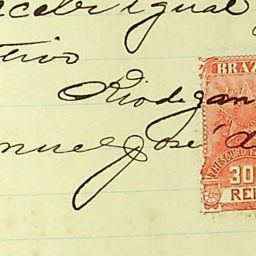 receber igual
tivo
Rio de Jan
nuel José d
BRAZ
THESOURO
30
REI